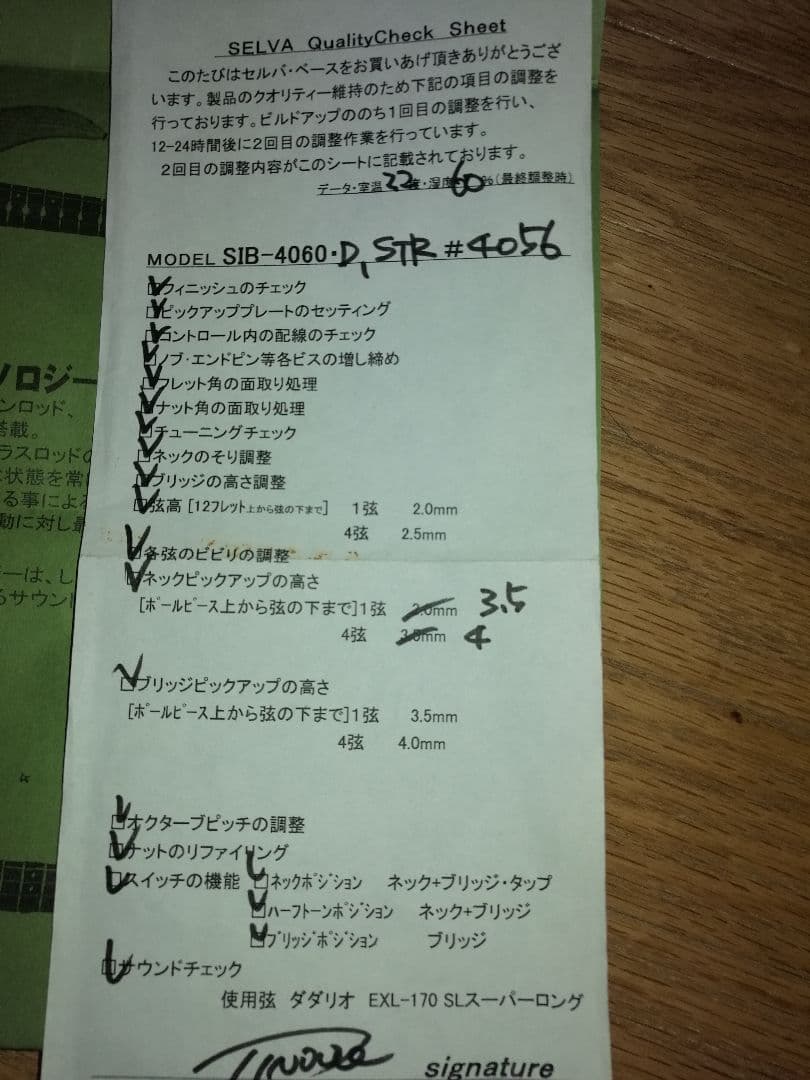 SELVA QualityCheck Sheet
このたびはセルバ・ベースをお買いあげ頂きありがとうござ
います。製品のクオリティー維持のため下記の項目の調整を
行っております。ビルドアップののち1回目の調整を行い、
12-24時間後に2回目の調整作業を行っています。
2回目の調整内容がこのシートに記載されております。
データ・室温22度・湿度60%(最終調整時)
MODEL SIB-4060・D, STR #4056
□フィニッシュのチェック
□ピックアッププレートのセッティング
□コントロール内の配線のチェック
□ノブ・エンドピン等各ビスの増し締め
□フレット角の面取り処理
□ナット角の面取り処理
□チューニングチェック
□ネックのそり調整
□ブリッジの高さ調整
□弦高 [12フレット上から弦の下まで] 1弦 2.0mm
4弦 2.5mm
□各弦のビビリの調整
□ネックピックアップの高さ
[ポールピース上から弦の下まで]1弦 3.0mm 3.5
4弦 3.5mm 4
□ブリッジピックアップの高さ
[ポールピース上から弦の下まで]1弦 3.5mm
4弦 4.0mm
□オクターブピッチの調整
□ナットのリファイリング
□スイッチの機能 □ネックポジション ネック+ブリッジ・タップ
□ハーフトーンポジション ネック+ブリッジ
□ブリッジポジション ブリッジ
□サウンドチェック
使用弦 ダダリオ EXL-170 SLスーパーロング
signature
ノロジー
ンロッド、
搭載。
ラスロッドの
状態を常
る事による
動に対し最
ーは、し
るサウンド